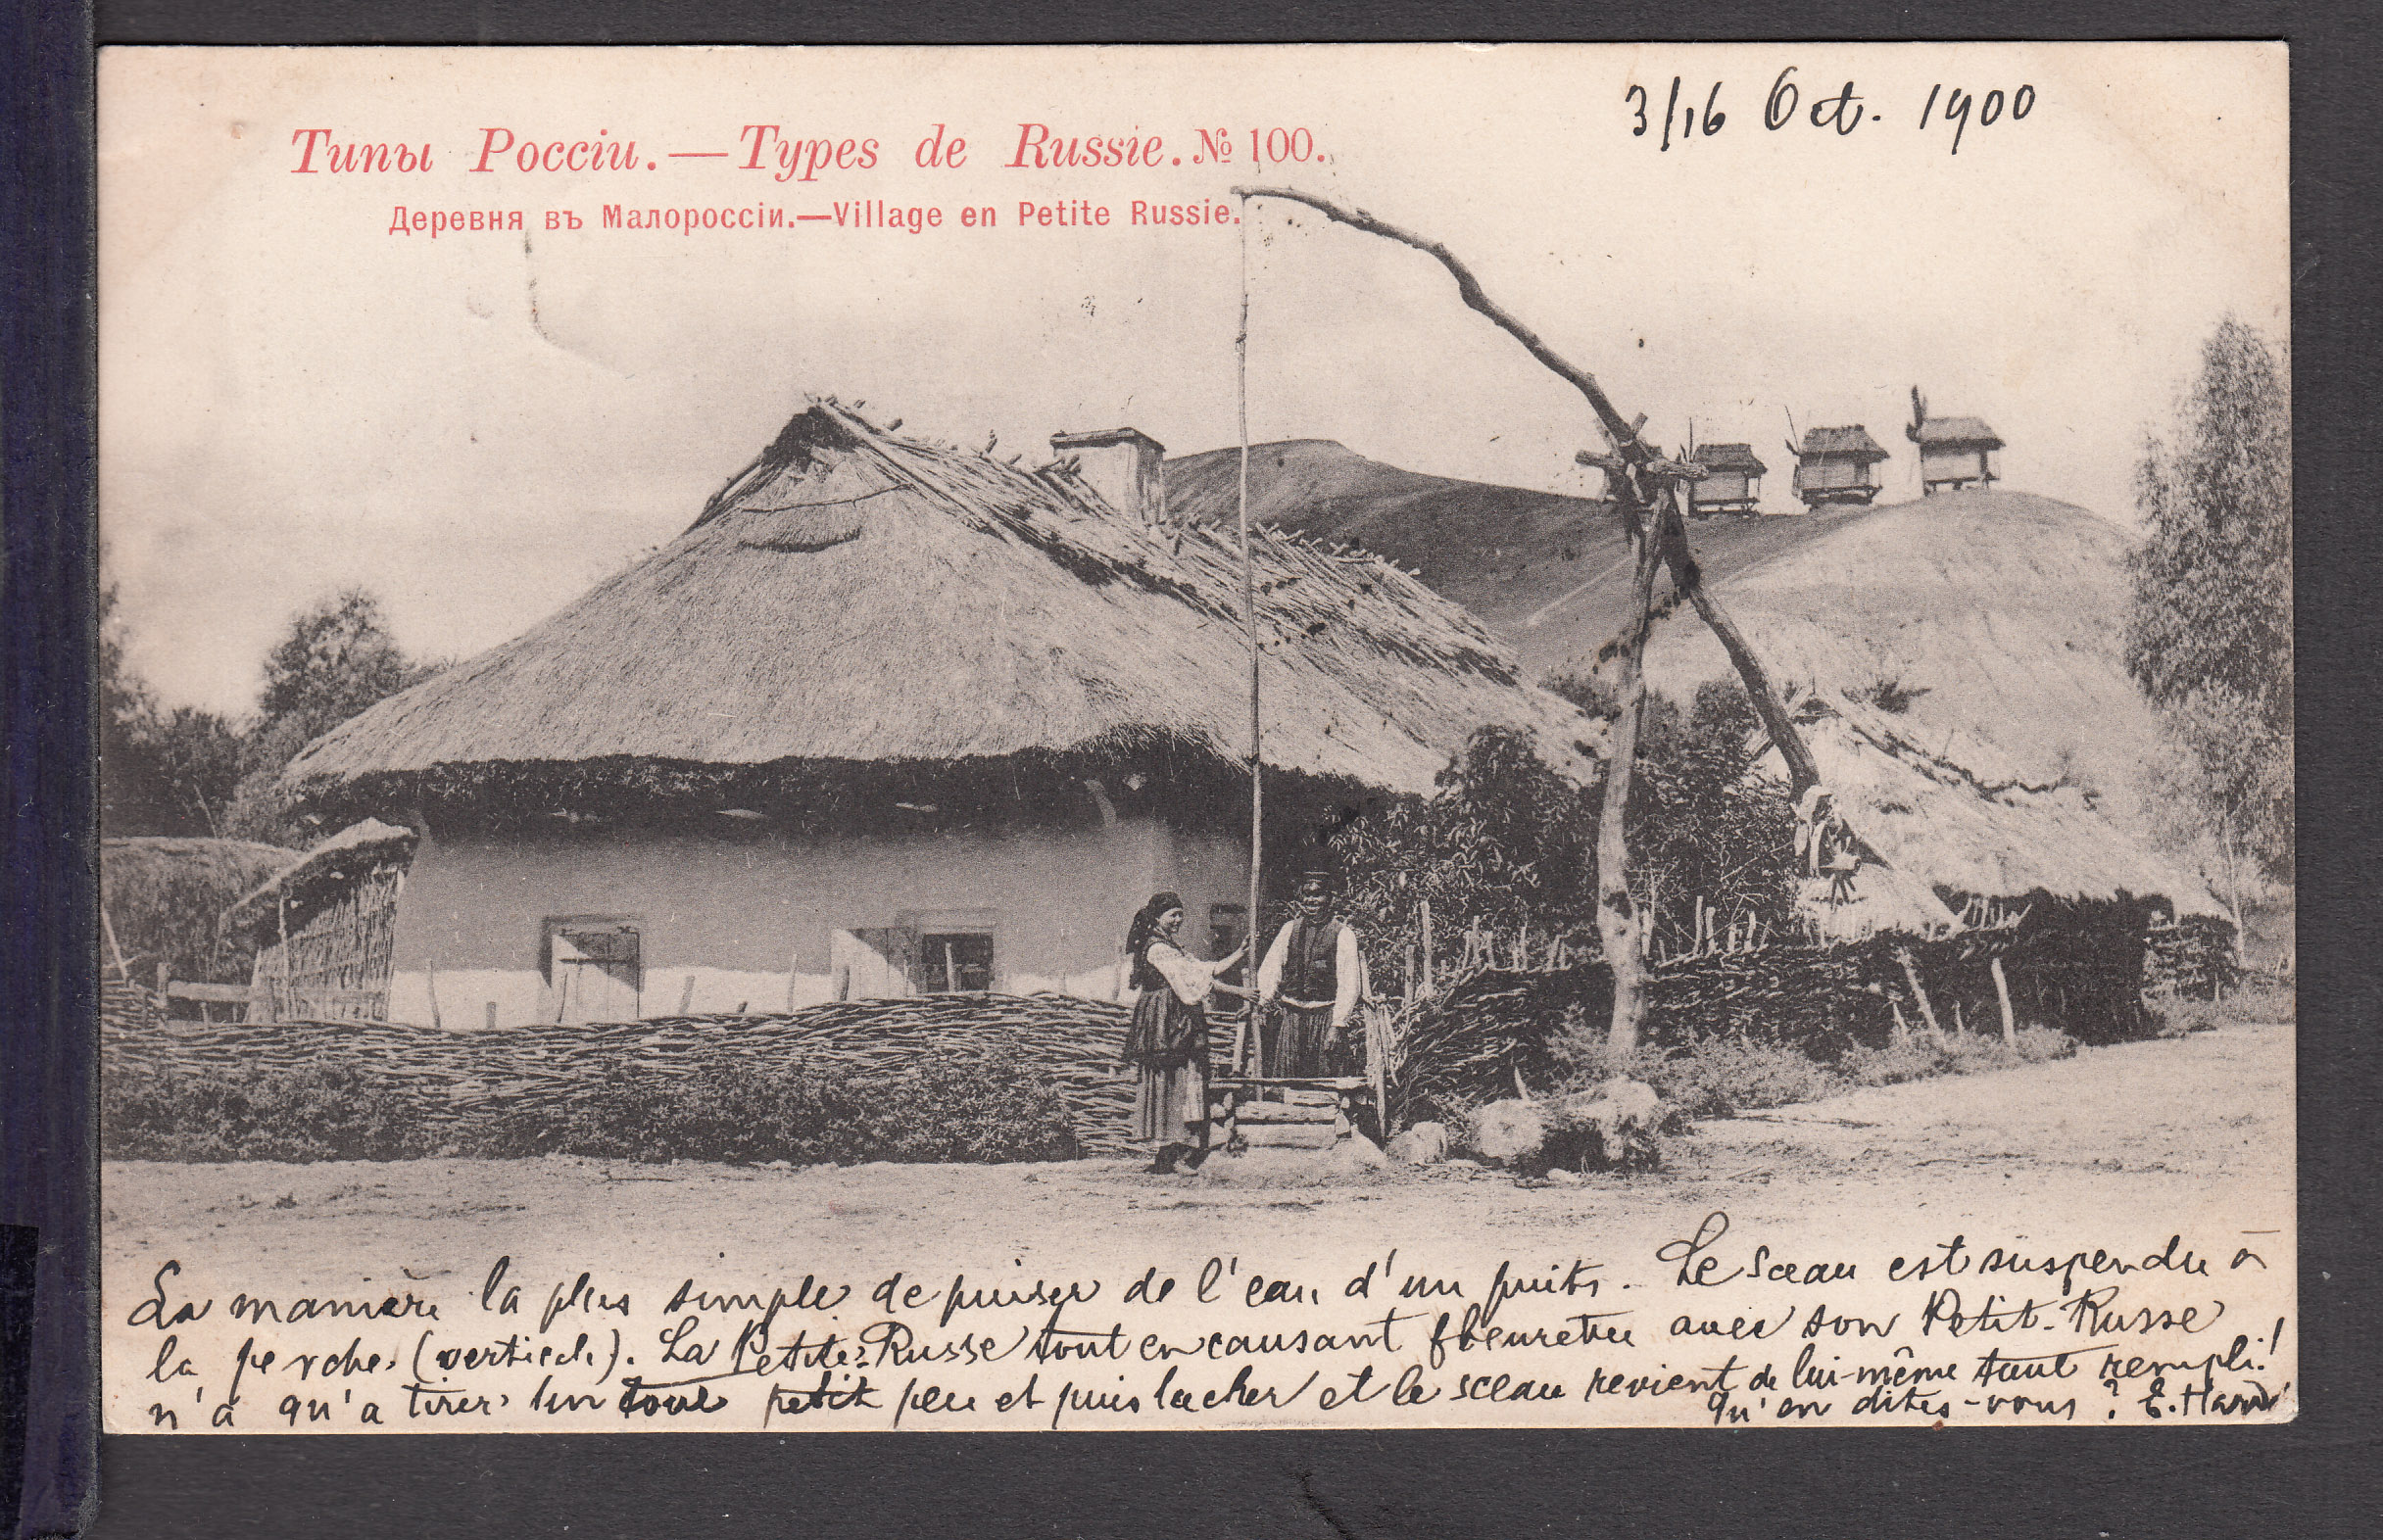 3/16 Oct. 1900
Типы Россiи.—Types de Russie. № 100.
Деревня въ Малороссiи.—Village en Petite Russie.
La manière la plus simple de puiser de l'eau d'un puits. Le sceau est suspendu à
la perche (verticale). La Petite-Russe tout en causant fleurette avec son Petit-Russe
n'a qu'a tirer un tout petit peu et puis lacher et le sceau revient de lui-même tout rempli!
Qu'en dites-vous? E.